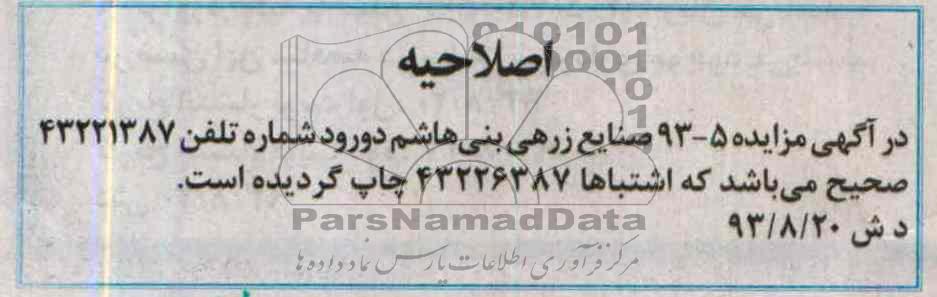 اصلاحیه
010101
0001
10
1
در آگهی مزایده ۵-۹۳ صنایع زرهی بنی هاشم دورود شماره تلفن ۴۳۲۲۱۳۸۷
صحیح می‌باشد که اشتباها ۴۳۲۲۶۳۸۷ چاپ گردیده است.
ParsNamadData
د ش ۹۳/۸/۲۰
مرکز فرآوری اطلاعات پارس نماد داده ها